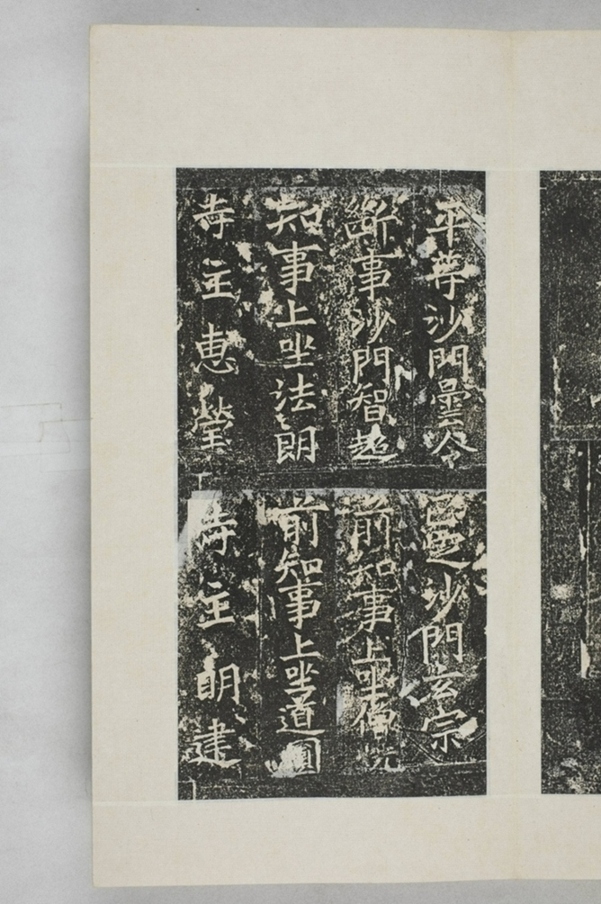 平等沙門曇令
斷事沙門智超
知事上坐法朗
寺主惠瑩
邑沙門玄宗
前知事上坐僧
前知事上坐道圓
寺主明建